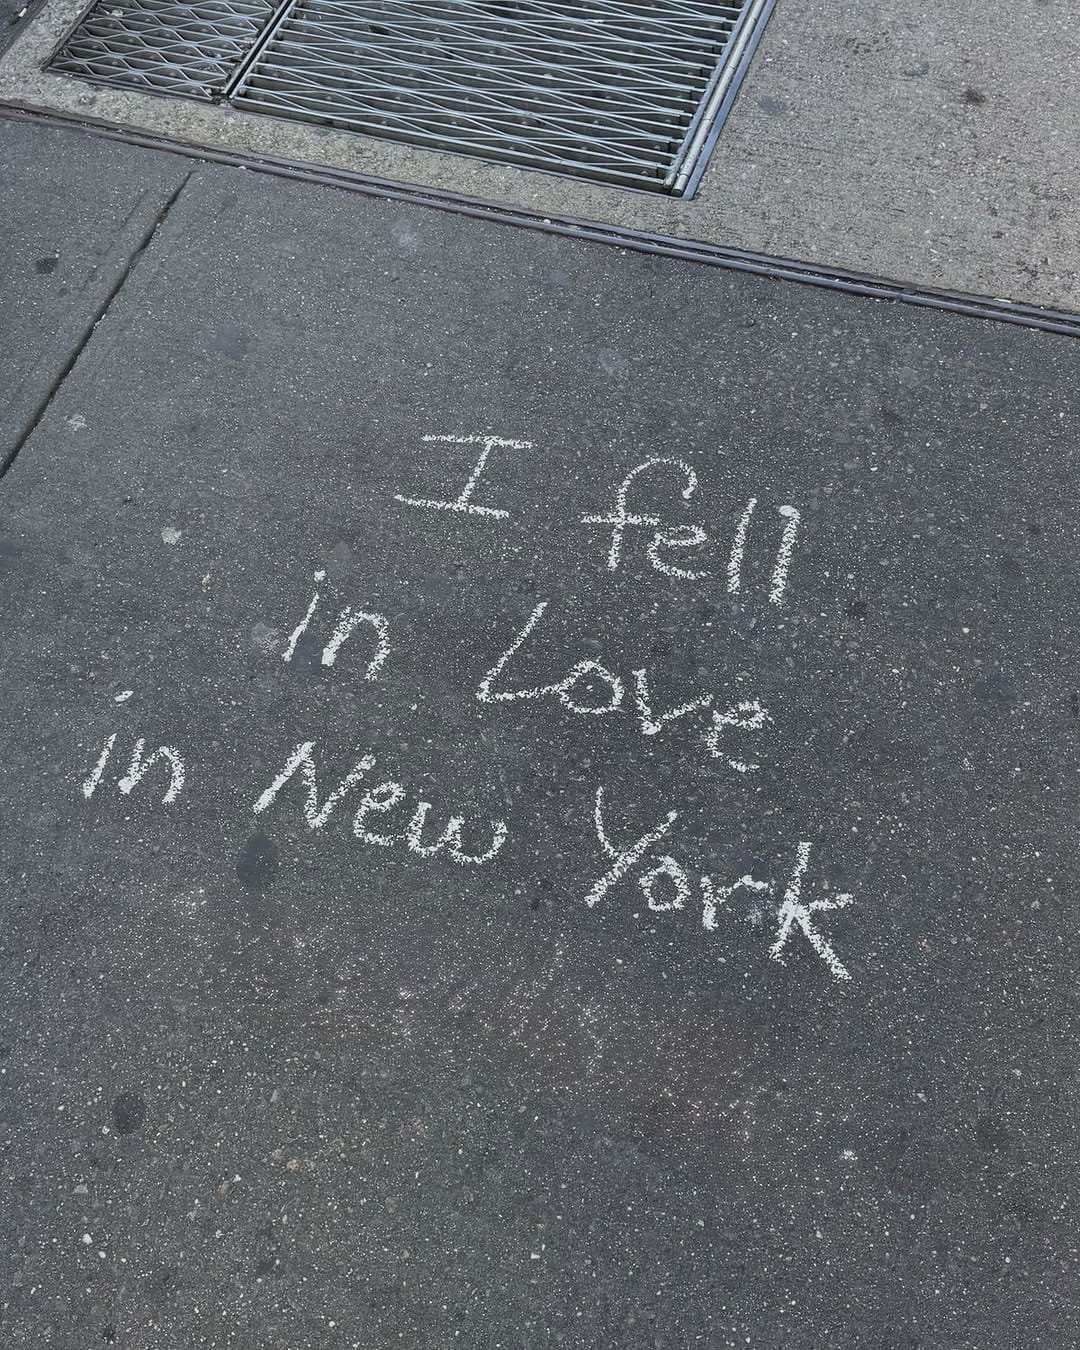 I fell
in Love
in New York